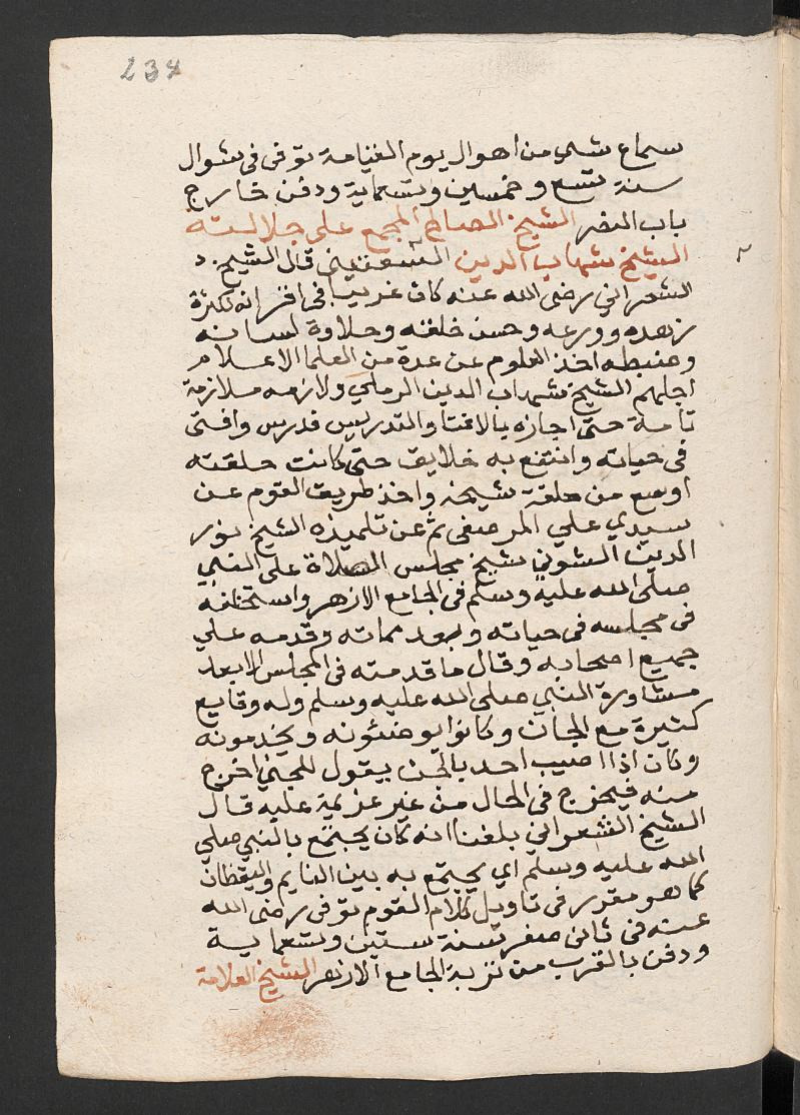 234
سماع شي من اهوال يوم القيامة توفى فى شوال
سنة تسع وخمسين وتسعماية ودفن خارج
باب النصر الشيخ الصالح المجمع على جلالته
الشيخ شهاب الدين قال الشيخ
الشعراني رضى الله عنه كان غريبا فى اقرانه لكثرة
زهده وورعه وحسن خلقه وحلاوة لسانه
وضبطه اخذ العلوم عن عدة من العلما الاعلام
اجلهم الشيخ شهاب الدين الرملي ولازمه ملازمة
تامة حتى اجازه بالافتا والتدريس فدرس وافتى
فى حياته وانتفع به خلايق حتى كانت حلقته
اوسع من حلقة شيخه واخذ طريق القوم عن
سيدي علي المرصفى ثم عن تلميذه الشيخ نور
الدين الشوني شيخ مجلس الصلاة على النبي
صلى الله عليه وسلم فى الجامع الازهر واستخلفه
فى مجلسه فى حياته وبعد مماته وقدمه علي
جميع اصحابه وقال ما قدمته فى المجلس الابعد
مشاورة النبي صلى الله عليه وسلم وله وقايع
كثيرة مع الجان وكانوا يوضئونه ويخدمونه
وكان اذا اصيب احد بالجن يقول للجني اخرج
منه فيخرج فى الحال من غير عزيمة عليه قال
الشيخ الشعراني بلغنا انه كان يجتمع بالنبي صلي
الله عليه وسلم اي يجتمع به بين النايم واليقظان
كما هو مقرر فى تاويل كلام القوم توفى رضى الله
عنه فى ثانى صفر سنة ستين وتسعماية
ودفن بالقرب من تربة الجامع الازهر الشيخ العلامة